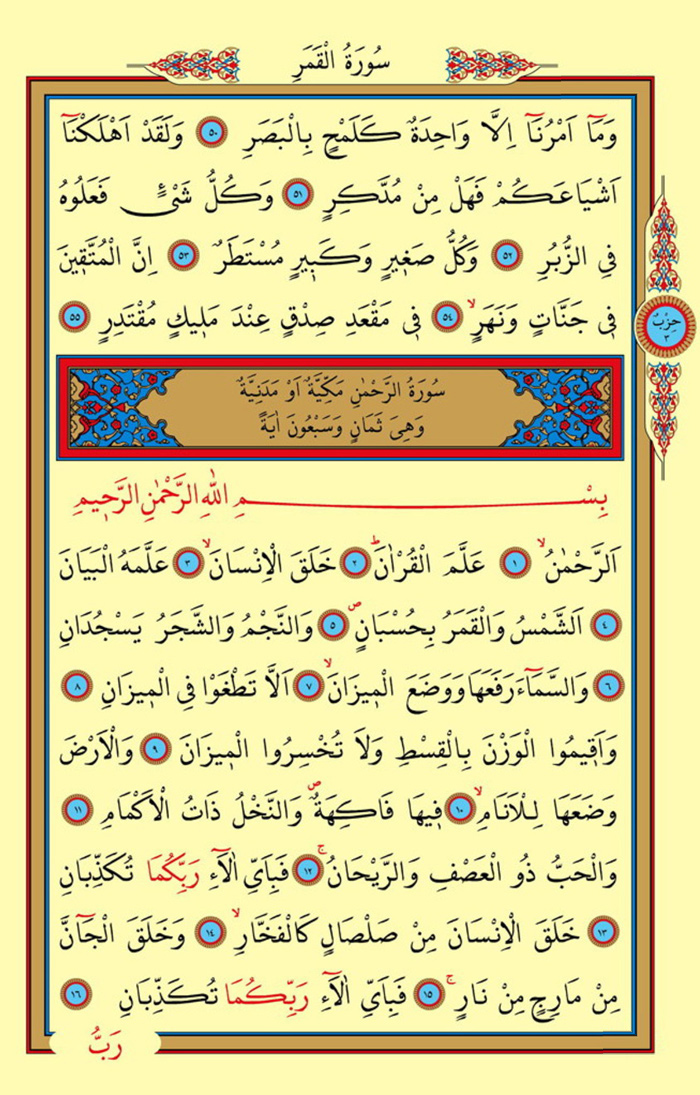 سُورَةُ الْقَمَرِ
وَمَٓا اَمْرُنَٓا اِلَّا وَاحِدَةٌ كَلَمْحٍ بِالْبَصَرِ ٥٠ وَلَقَدْ اَهْلَكْنَٓا
اَشْيَاعَكُمْ فَهَلْ مِنْ مُدَّكِرٍ ٥١ وَكُلُّ شَیْءٍ فَعَلُوهُ
فِي الزُّبُرِ ٥٢ وَكُلُّ صَغٖيرٍ وَكَبٖيرٍ مُسْتَطَرٌ ٥٣ اِنَّ الْمُتَّقٖينَ
فٖي جَنَّاتٍ وَنَهَرٍۙ ٥٤ فٖي مَقْعَدِ صِدْقٍ عِنْدَ مَلٖيكٍ مُقْتَدِرٍ ٥٥
حِزْبٌ ٣
سُورَةُ الرَّحْمٰنِ مَكِّيَّةٌ اَوْ مَدَنِيَّةٌ
وَهِیَ ثَمَانٍ وَسَبْعُونَ اٰيَةً
بِسْمِ اللّٰهِ الرَّحْمٰنِ الرَّحٖيمِ
اَلرَّحْمٰنُۙ ١ عَلَّمَ الْقُرْاٰنَؕ ٢ خَلَقَ الْاِنْسَانَۙ ٣ عَلَّمَهُ الْبَيَانَ
٤ اَلشَّمْسُ وَالْقَمَرُ بِحُسْبَانٍۖ ٥ وَالنَّجْمُ وَالشَّجَرُ يَسْجُدَانِ
٦ وَالسَّمَٓاءَ رَفَعَهَا وَوَضَعَ الْمٖيزَانَۙ ٧ اَلَّا تَطْغَوْا فِي الْمٖيزَانِ ٨
وَاَقٖيمُوا الْوَزْنَ بِالْقِسْطِ وَلَا تُخْسِرُوا الْمٖيزَانَ ٩ وَالْاَرْضَ
وَضَعَهَا لِلْاَنَامِۙ ١٠ فٖيهَا فَاكِهَةٌۖ وَالنَّخْلُ ذَاتُ الْاَكْمَامِ ١١
وَالْحَبُّ ذُو الْعَصْفِ وَالرَّيْحَانُۚ ١٢ فَبِاَيِّ اٰلَٓاءِ رَبِّكُمَا تُكَذِّبَانِ
١٣ خَلَقَ الْاِنْسَانَ مِنْ صَلْصَالٍ كَالْفَخَّارِۙ ١٤ وَخَلَقَ الْجَٓانَّ
مِنْ مَارِجٍ مِنْ نَارٍۚ ١٥ فَبِاَيِّ اٰلَٓاءِ رَبِّكُمَا تُكَذِّبَانِ ١٦
رَبُّ